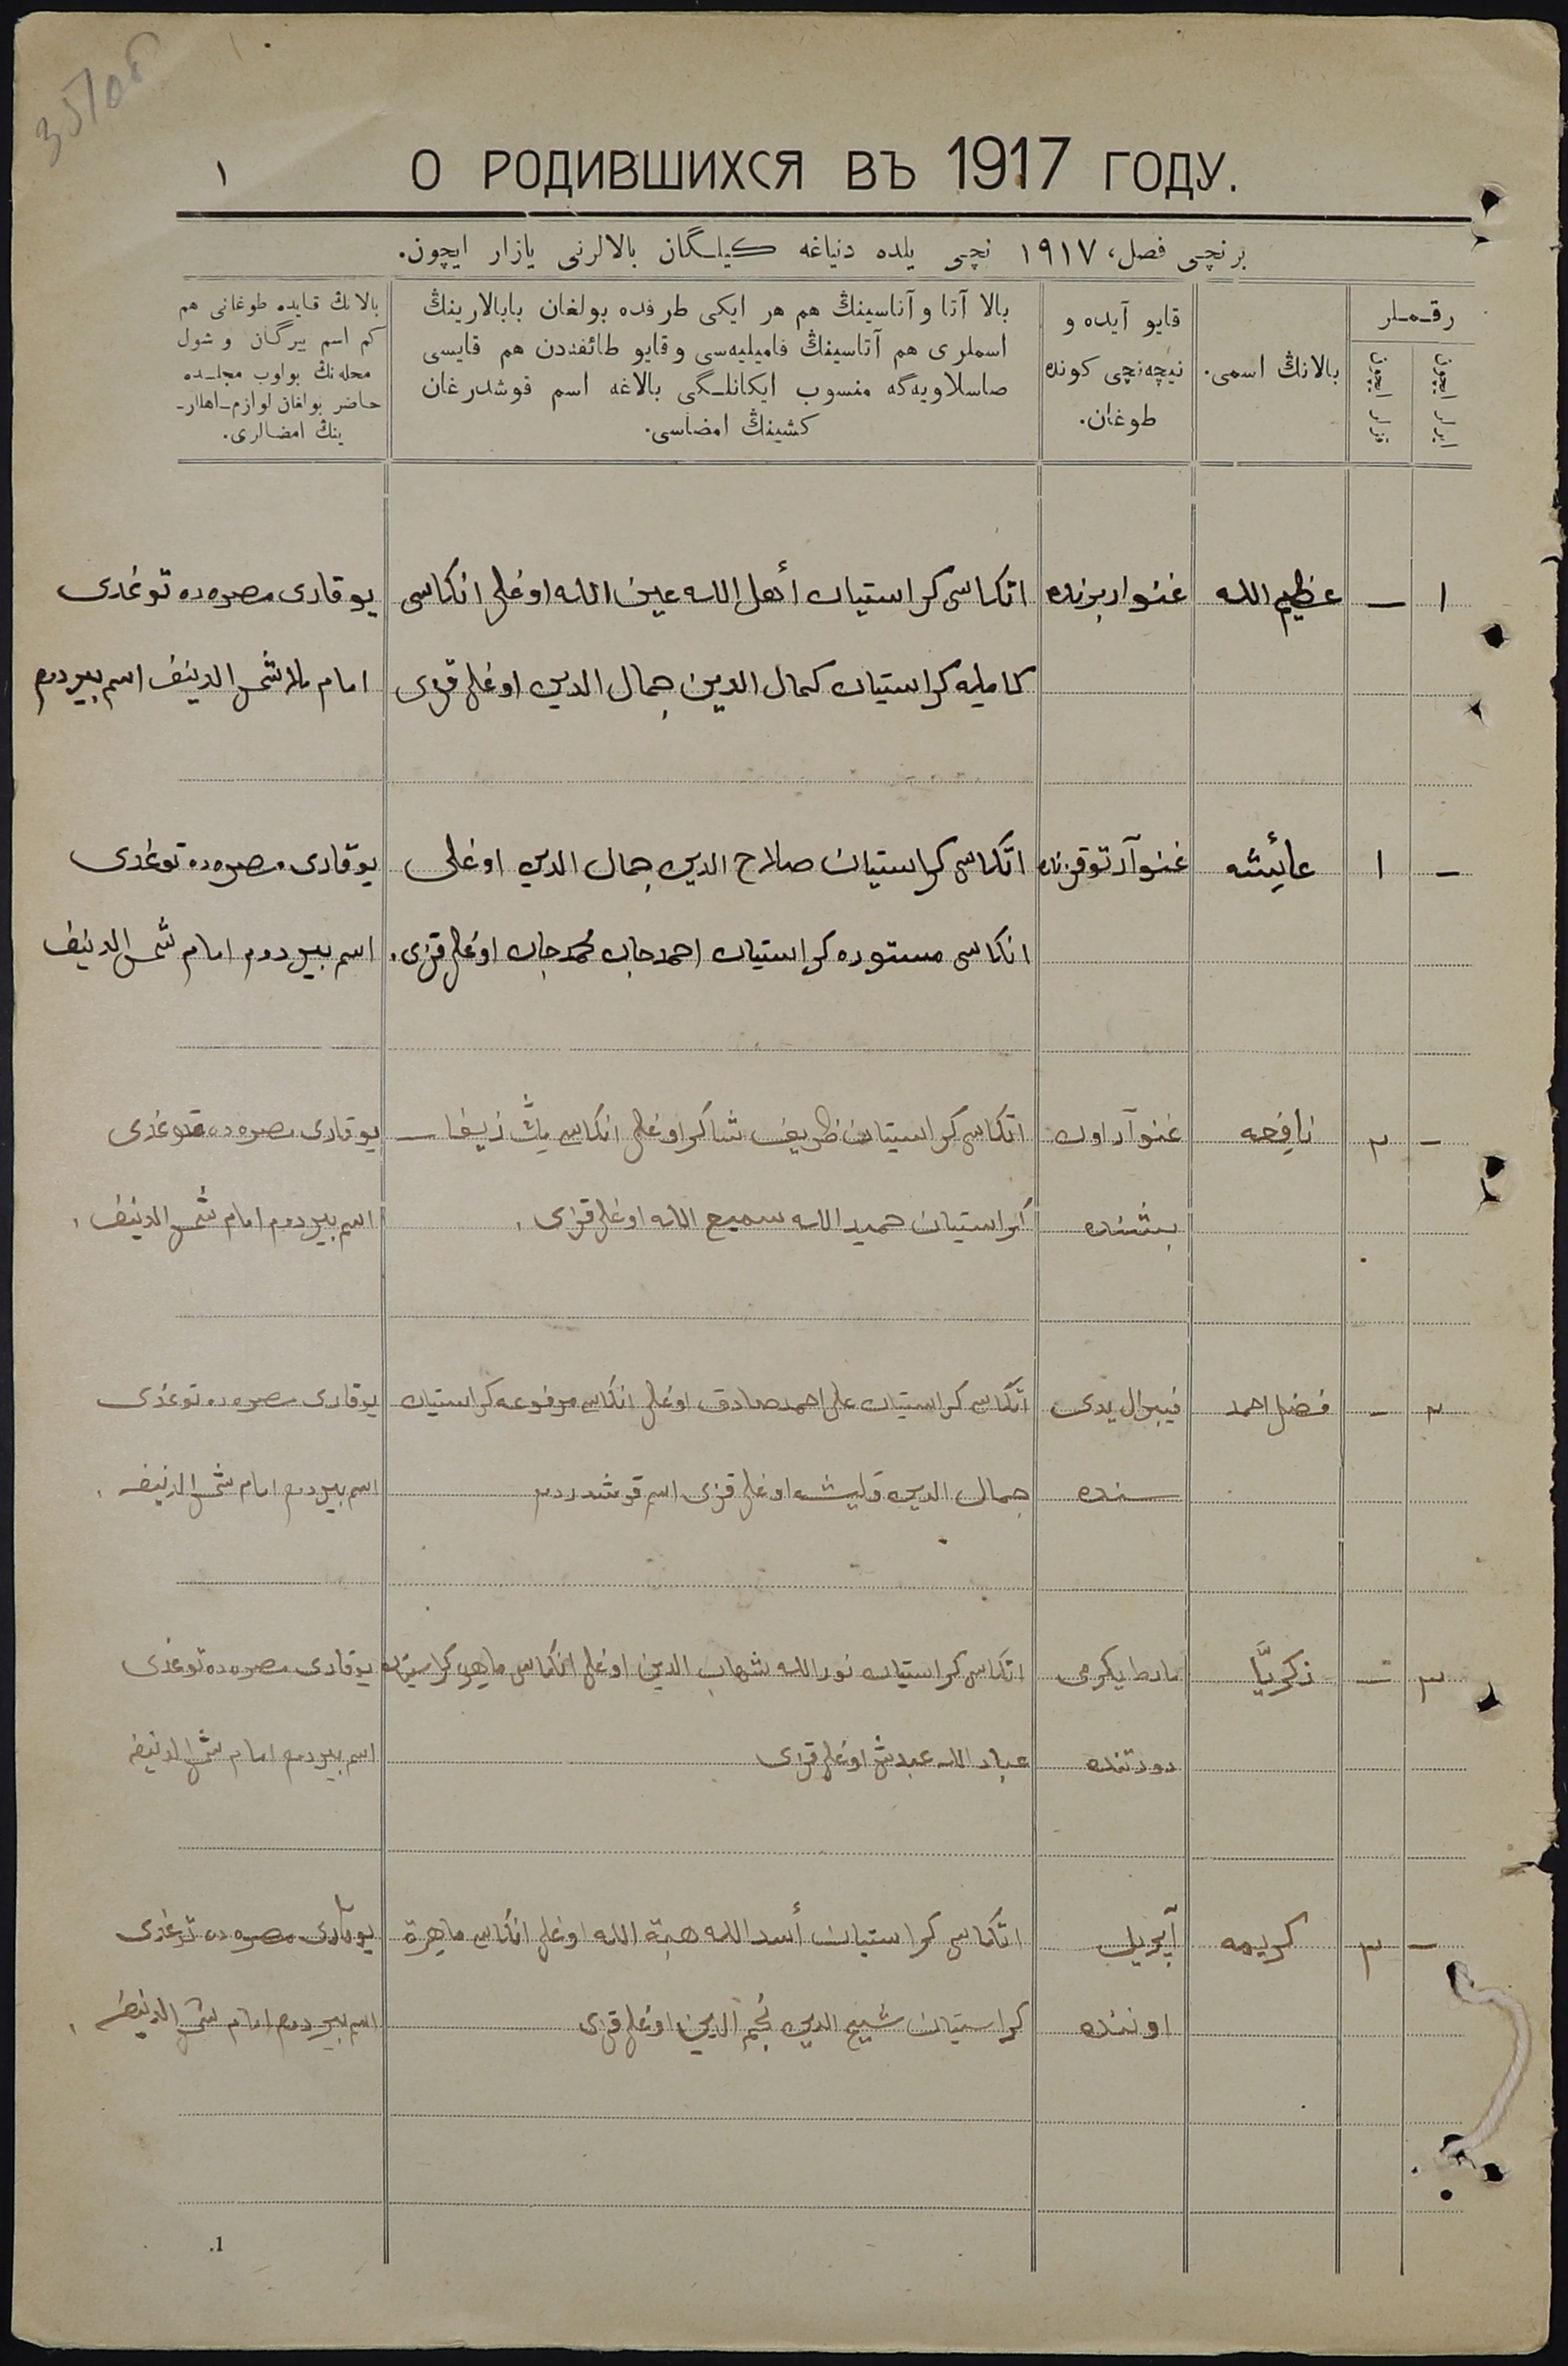 35108
О РОДИВШИХСЯ ВЪ 1917 ГОДУ.
١
برنچی فصل، ١٩١٧ نچی یلده دنیاغه کیلـگان بالالرنی یازار ایچون.
رقـمـلر
ایرلر ایچون
قزلر ایچون
بالانڭ اسمی.
قایو آیده و
نیچه‌نچی کونده
طوغان.
بالا آتا و آناسینڭ هم هر ایکی طرفده بولغان بابالارینڭ
اسملری هم آتاسینڭ فامیلیه‌سی و قایو طائفه‌دن هم قایسی
صاسلاویه‌گه منسوب ایکانلـگی بالاغه اسم قوشدرغان
کشینڭ امضاسی.
بالانڭ قایده طوغانی هم
کم اسم بیرگان و شول
محله‌نڭ بولوب مجلـده
حاضر بولغان لوازم‌ـاهللرـ
ینڭ امضالری.
١ — عظیم الله غنوار برنده اتکاسی کراستیان أهل الله عین الله اوغلی انکاسی یوقاری مصره ده توغدی
کاملیه کراستیان کمال الدین جمال الدین اوغلی قزی امام ملا شمس الدینف اسم بیردم
— ١ عائیشه غنوآر توقزنده اتکاسی کراستیان صلاح الدین جمال الدین اوغلی یوقاری مصره ده توغدی
انکاسی مستوره کراستیان احمدجان محمدجان اوغلی قزی. اسم بیردوم امام شمس الدینف
— ٢ نافحه غنوآر اون اتکاسی کراستیان ظریف شاکر اوغلی انکاسی زیفا — یوقاری مصره ده توغدی
بشنده کراستیان حمید الله سمیع الله اوغلی قزی. اسم بیردوم امام شمس الدینف.
٢ — فضل احمد فیبرال یدی اتکاسی کراستیان علی احمد صادق اوغلی انکاسی مرفوعه کراستیان یوقاری مصره ده توغدی
سنده جمال الدین اوغلی قزی اسم قوشدردم اسم بیردم امام شمس الدینف.
٣ — زکریَّا مارط یکرمی اتکاسی کراستیان نور الله شهاب الدین اوغلی انکاسی کراستیان یوقاری مصره ده توغدی
دورتنده عباد الله اوغلی قزی اسم بیردم امام شمس الدینف
— ٣ کریمه آپریل اتکاسی کراستیان أسد الله همة الله اوغلی انکاسی ماهرة یوقاری مصره ده توغدی
اوننده کراستیان شیخ الدین نجم الدین اوغلی قزی اسم بیردوم امام شمس الدینف.
1.